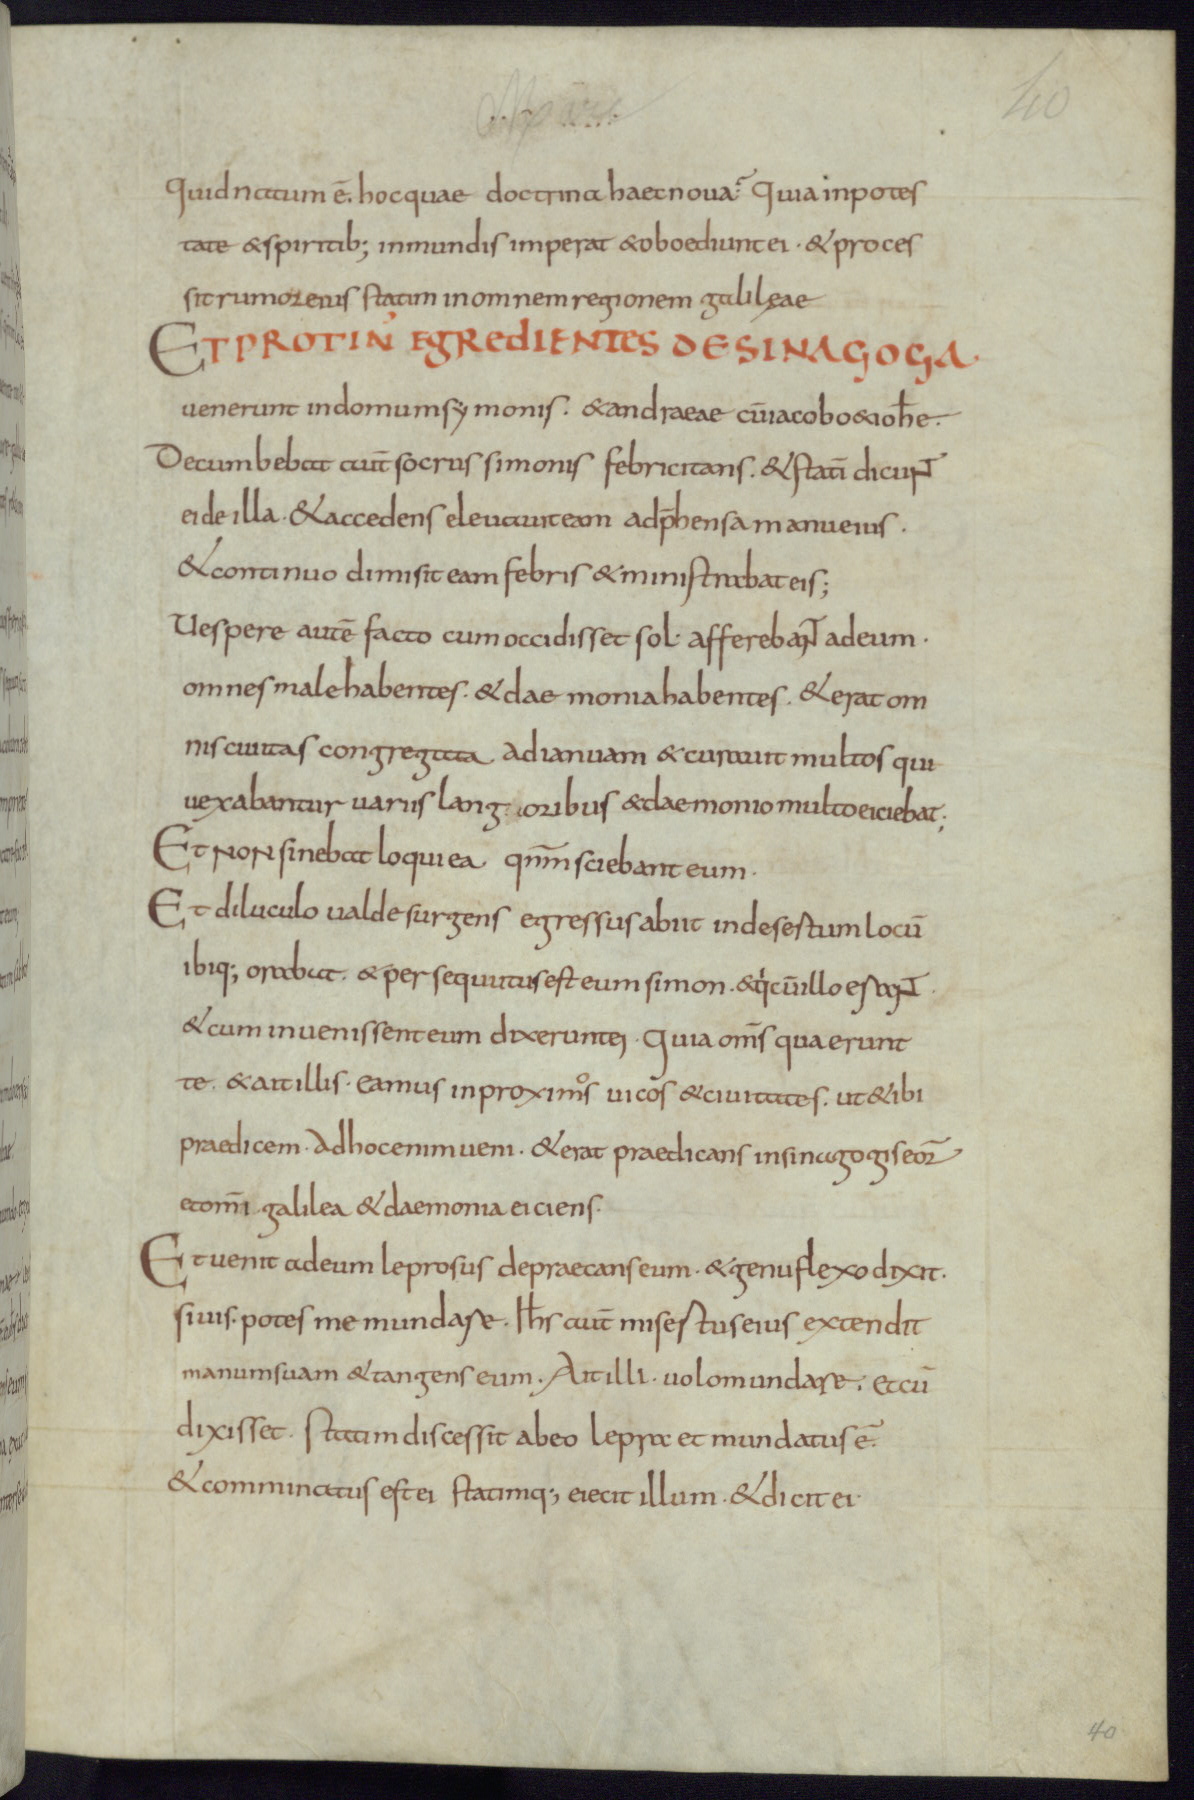 40
Quid natum ē. hoc quae doctrina haec noua? Quia in potes
tate & spiritib; inmundis imperat & oboediunt ei · & proces
sit rumor eius statim in omnem regionem galileae
ET PROTIN' EGREDIENTES DE SINAGOGA·
uenerunt in domum symonis. & andraeae cū iacobo & ioh̄e·
Decumbebat aut̄ socrus simonis febricitans. & statī dicunt
ei de illa · & accedens eleuauit eam adp̄hensa manu eius ·
& continuo dimisit eam febris & ministrabat eis;
Uespere autē facto cum occidisset sol· afferebant ad eum ·
omnes male habentes. & daemonia habentes. & erat om
nis ciuitas congregata ad ianuam & curauit multos qui
uexabantur uariis langoribus & daemonio multo eiciebat;
Et non sinebat loqui ea qn̄m sciebant eum·
Et diluculo ualde surgens egressus abiit in desertum locū
ibiq; orabat. & persequutus est eum simon. & qi cū illo erant ·
& cum inuenissent eum dixerunt ei · Quia om̄s quaerunt
te. & ait illis · eamus in proximos uicos & ciuitates. ut & ibi
praedicem · Ad hoc enim ueni · & erat praedicans in sinagogis eor̄
et om̄i galilea & daemonia eiciens·
Et uenit ad eum leprosus depraecans eum · & genu flexo dixit·
si uis· potes me mundare · Ih̄s aut̄ misertus eius extendit
manum suam & tangens eum · Ait illi · uolo mundare. et cū
dixisset · statim discessit ab eo lepra et mundatus ē.
& comminatus est ei statimq; eiecit illum · & dicit ei·
40